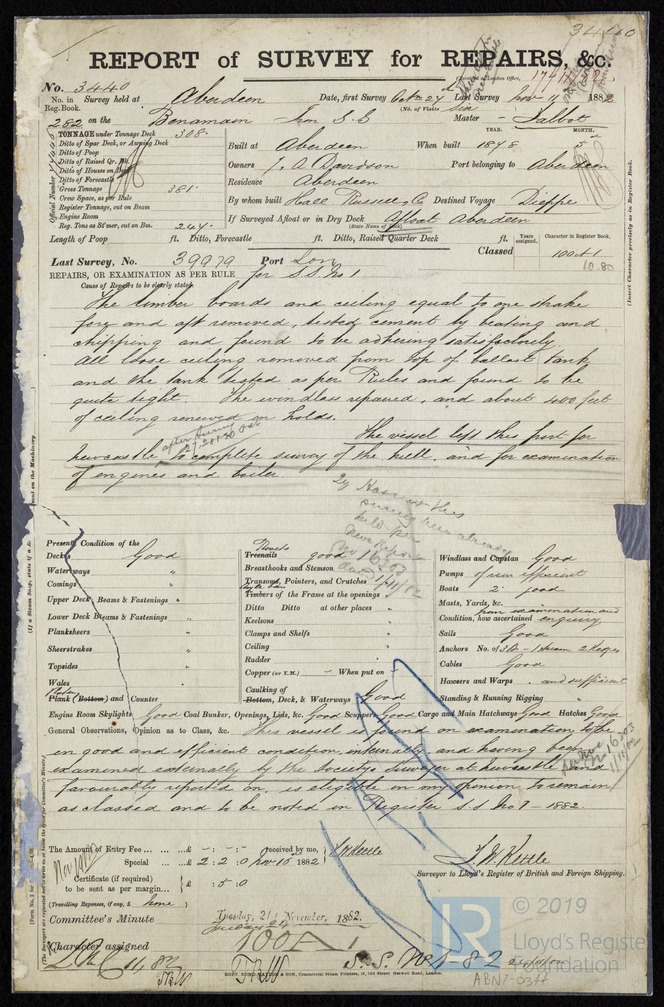 34460
REPORT of SURVEY for REPAIRS, &c.
No. 3440
No. in Survey held at Aberdeen Date, first Survey Oct 27 Last Survey Nov 11 1882
Reg. Book. (No. of Visits Six
282 on the Benamain Iron S.S Master Talbot
TONNAGE under Tonnage Deck 308.
Ditto of Spar Deck, or Awning Deck
Ditto of Poop
Ditto of Raised Qr. Dk.
Ditto of Houses on Deck
Ditto of Forecastle
Gross Tonnage 381.
Crew Space, as per Rule
Register Tonnage, cut on Beam
Engine Room
Reg. Tons as St'mer, cut on Bm. 247.
YEAR. MONTH.
Built at Aberdeen When built 1878 5
Owners J. A Davidson Port belonging to Aberdeen
Residence Aberdeen
By whom built Hall Russell & Co Destined Voyage Dieppe
If Surveyed Afloat or in Dry Dock Afloat Aberdeen
(State Name of Dock)
Length of Poop ft. Ditto, Forecastle ft. Ditto, Raised Quarter Deck ft.
Years assigned, Character in Register Book.
Last Survey, No. 39979 Port Lon Classed 100A1
10.80
REPAIRS, OR EXAMINATION AS PER RULE for S.S. No 1
Cause of Repairs to be clearly stated
The limber boards and ceiling equal to one strake
fore and aft removed, tested cement by beating and
chipping and found to be adhering satisfactorily.
All loose ceiling removed from top of ballast tank
and the tank tested as per Rules and found to be
quite tight. The windlass repaired, and about 400 feet
of ceiling renewed in holds.
The vessel left this port for
Newcastle, to complete survey of the hull, and for examination
of engines and boiler.
Present Condition of the
Decks Good
Waterways "
Comings "
Upper Deck Beams & Fastenings "
Lower Deck Beams & Fastenings "
Planksheers "
Sheerstrakes "
Topsides "
Wales "
Plank (Bottom) and Counter
Rivets
Treenails good
Breasthooks and Stemson "
Transoms, Pointers, and Crutches "
Timbers of the Frame at the openings "
Ditto Ditto at other places "
Keelsons "
Clamps and Shelfs "
Ceiling "
Rudder "
Copper (or Y.M.) — When put on —
Caulking of
Bottom, Deck, & Waterways Good
Windlass and Capstan Good
Pumps of iron efficient
Boats 2. good
Masts, Yards, &c. from examination and
Condition, how ascertained enquiry
Sails Good
Cables Good
Hawsers and Warps " and sufficient
Standing & Running Rigging "
Engine Room Skylights Good Coal Bunker, Openings, Lids, &c. Good Scuppers Good Cargo and Main Hatchways Good Hatches Good
General Observations, Opinion as to Class, &c. This vessel is found on examination to be
in good and efficient condition internally and having been
examined externally by the Society's Surveyor at Newcastle and
favourably reported on, is eligible in my opinion to remain
as classed and to be noted in Register S.S No 1 - 1882.
The Amount of Entry Fee ... ... £ - : - : - received by me,
Special ... ... £ 2 : 2 : 0 Nov 10 1882
Certificate (if required) to be sent as per margin... £ : 5 : 0
(Travelling Expenses, if any, £ none)
J. W. Kettle
Surveyor to Lloyd's Register of British and Foreign Shipping.
Committee's Minute Tuesday, 21st November, 1882.
Character assigned 100A1
S.S. No 1-82
LR
© 2019
Lloyd's Register
Foundation